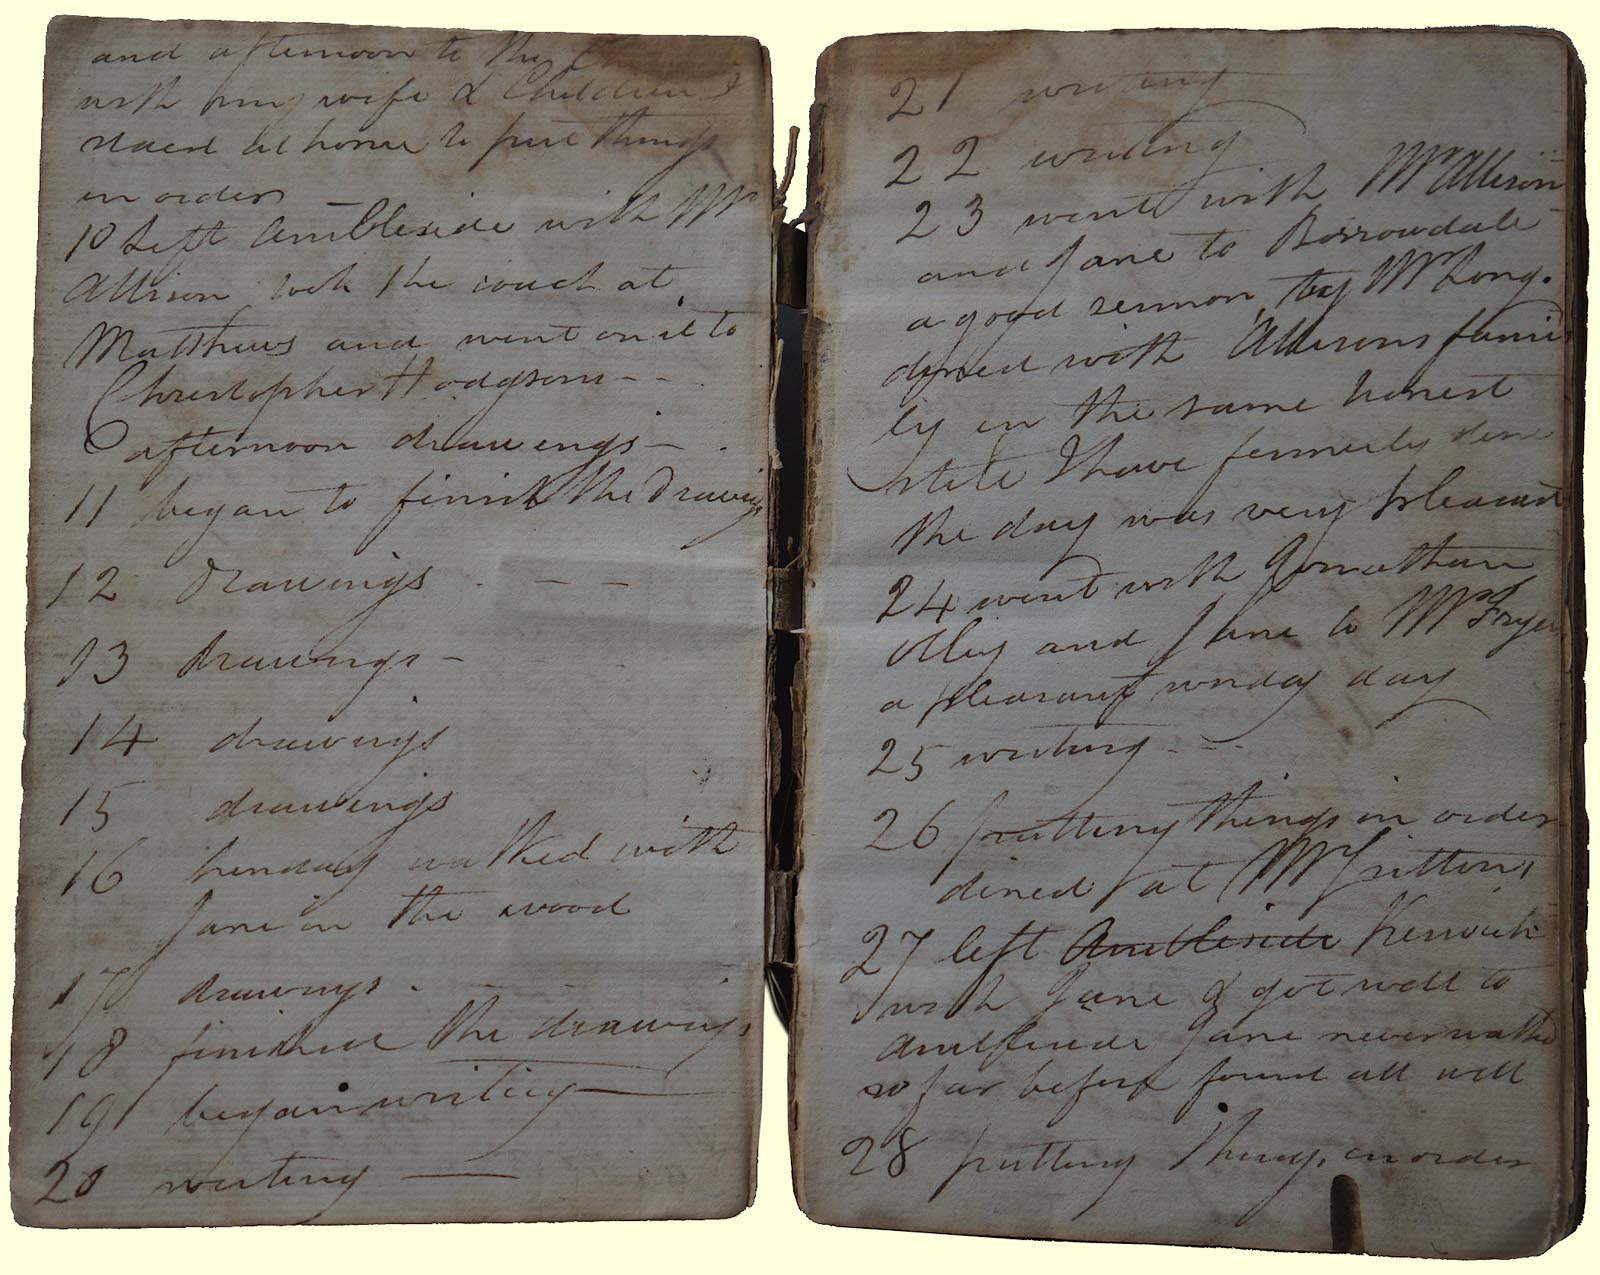 and afternoon to the
with my wife & Children I
staed at home to put things
in order
10 Left Ambleside with Mr
Allison took the coach at
Matthews and went on it to
Christopher Hodgsons - -
afternoon drawings -
11 began to finish the Drawings
12 Drawings - - -
13 drawings -
14 drawings
15 drawings
16 walked with
Jane in the wood
17 drawings -
18 finished the drawings
19 began writing
20 writing
21 writing
22 writing
23 went with Mr Allison
and Jane to Borrowdale
a good sermon by Mr Long.
dined with Allisons fami
ly in the same honest
stile I have formerly done
the day was very pleasant
24 went with Jonathan
Otley and Jane to Mr Fryer
a pleasant day
25 writing - -
26 putting things in order
dined at Mr
27 left Ambleside Keswick
with Jane & got well to
Ambleside Jane never walkd
so far before found all well
28 putting things in order